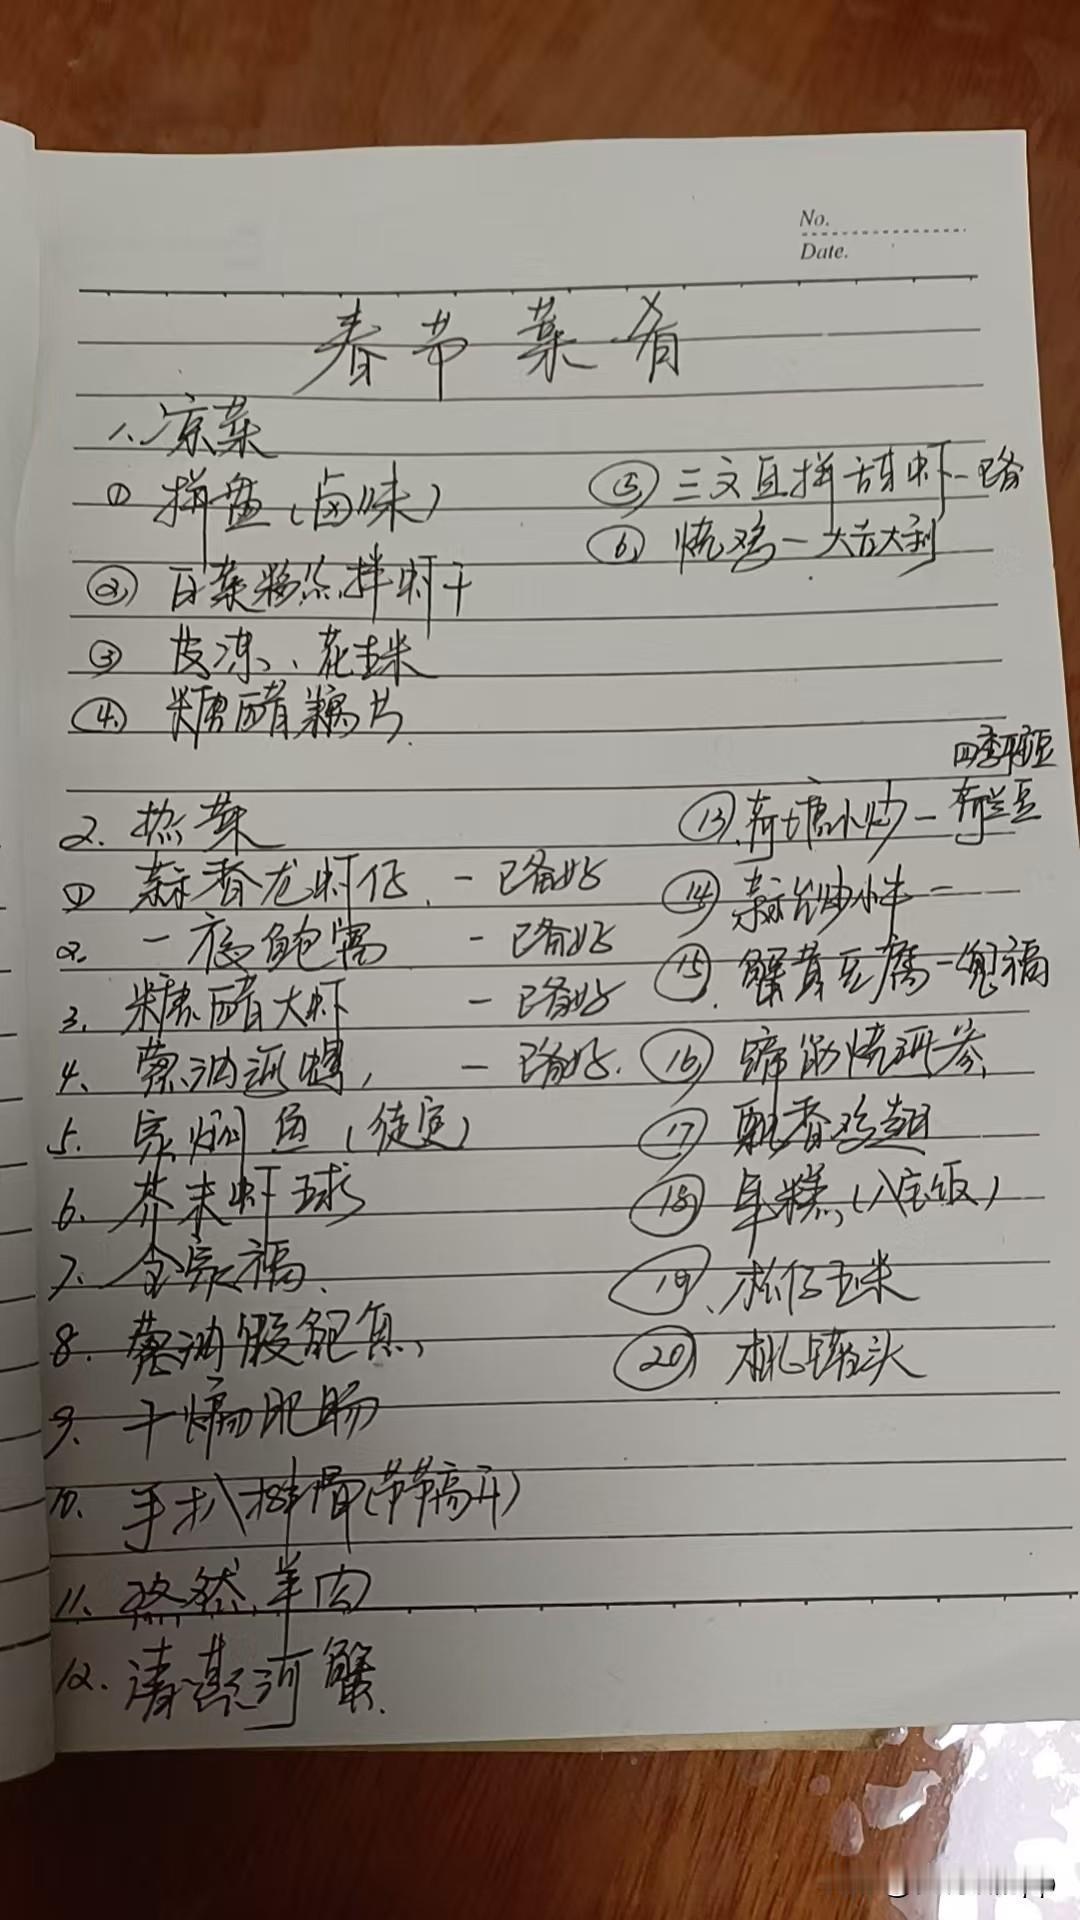 No.
Date.
春节菜肴
1、凉菜
① 拼盘(卤味)
② 白菜粉丝拌虾干
③ 皮冻、花生米
④ 糖醋藕片
⑤ 三文鱼拼甜虾-已备
⑥ 烧鸡-大吉大利
2. 热菜
① 蒜香龙虾仔 - 已备好
2. 一夜鲍窝 - 已备好
3. 糖醋大虾 - 已备好
4. 葱油海螺, - 已备好.
5. 家焖鱼(待定)
6. 芥末虾球
7. 全家福、
8. 葱油假鲍鱼、
9. 干煸肥肠
10. 手扒排骨(节节高升)
11. 孜然羊肉
12. 清蒸河蟹.
四季平安豆
⑬ 荷塘小炒-荷兰豆
⑭ 蒜台炒小牛-
⑮ 蟹黄豆腐-兜福
⑯ 蹄筋烧海参
⑰ 飘香鸡翅
⑱ 年糕(八宝饭)
⑲ 松仔玉米
⑳ 桃罐头